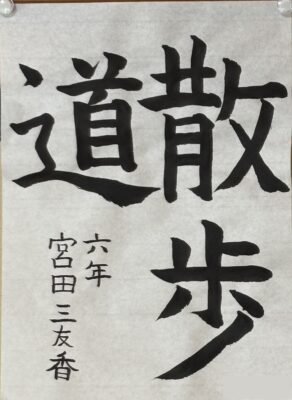 散歩
道
六年
宮田三友香